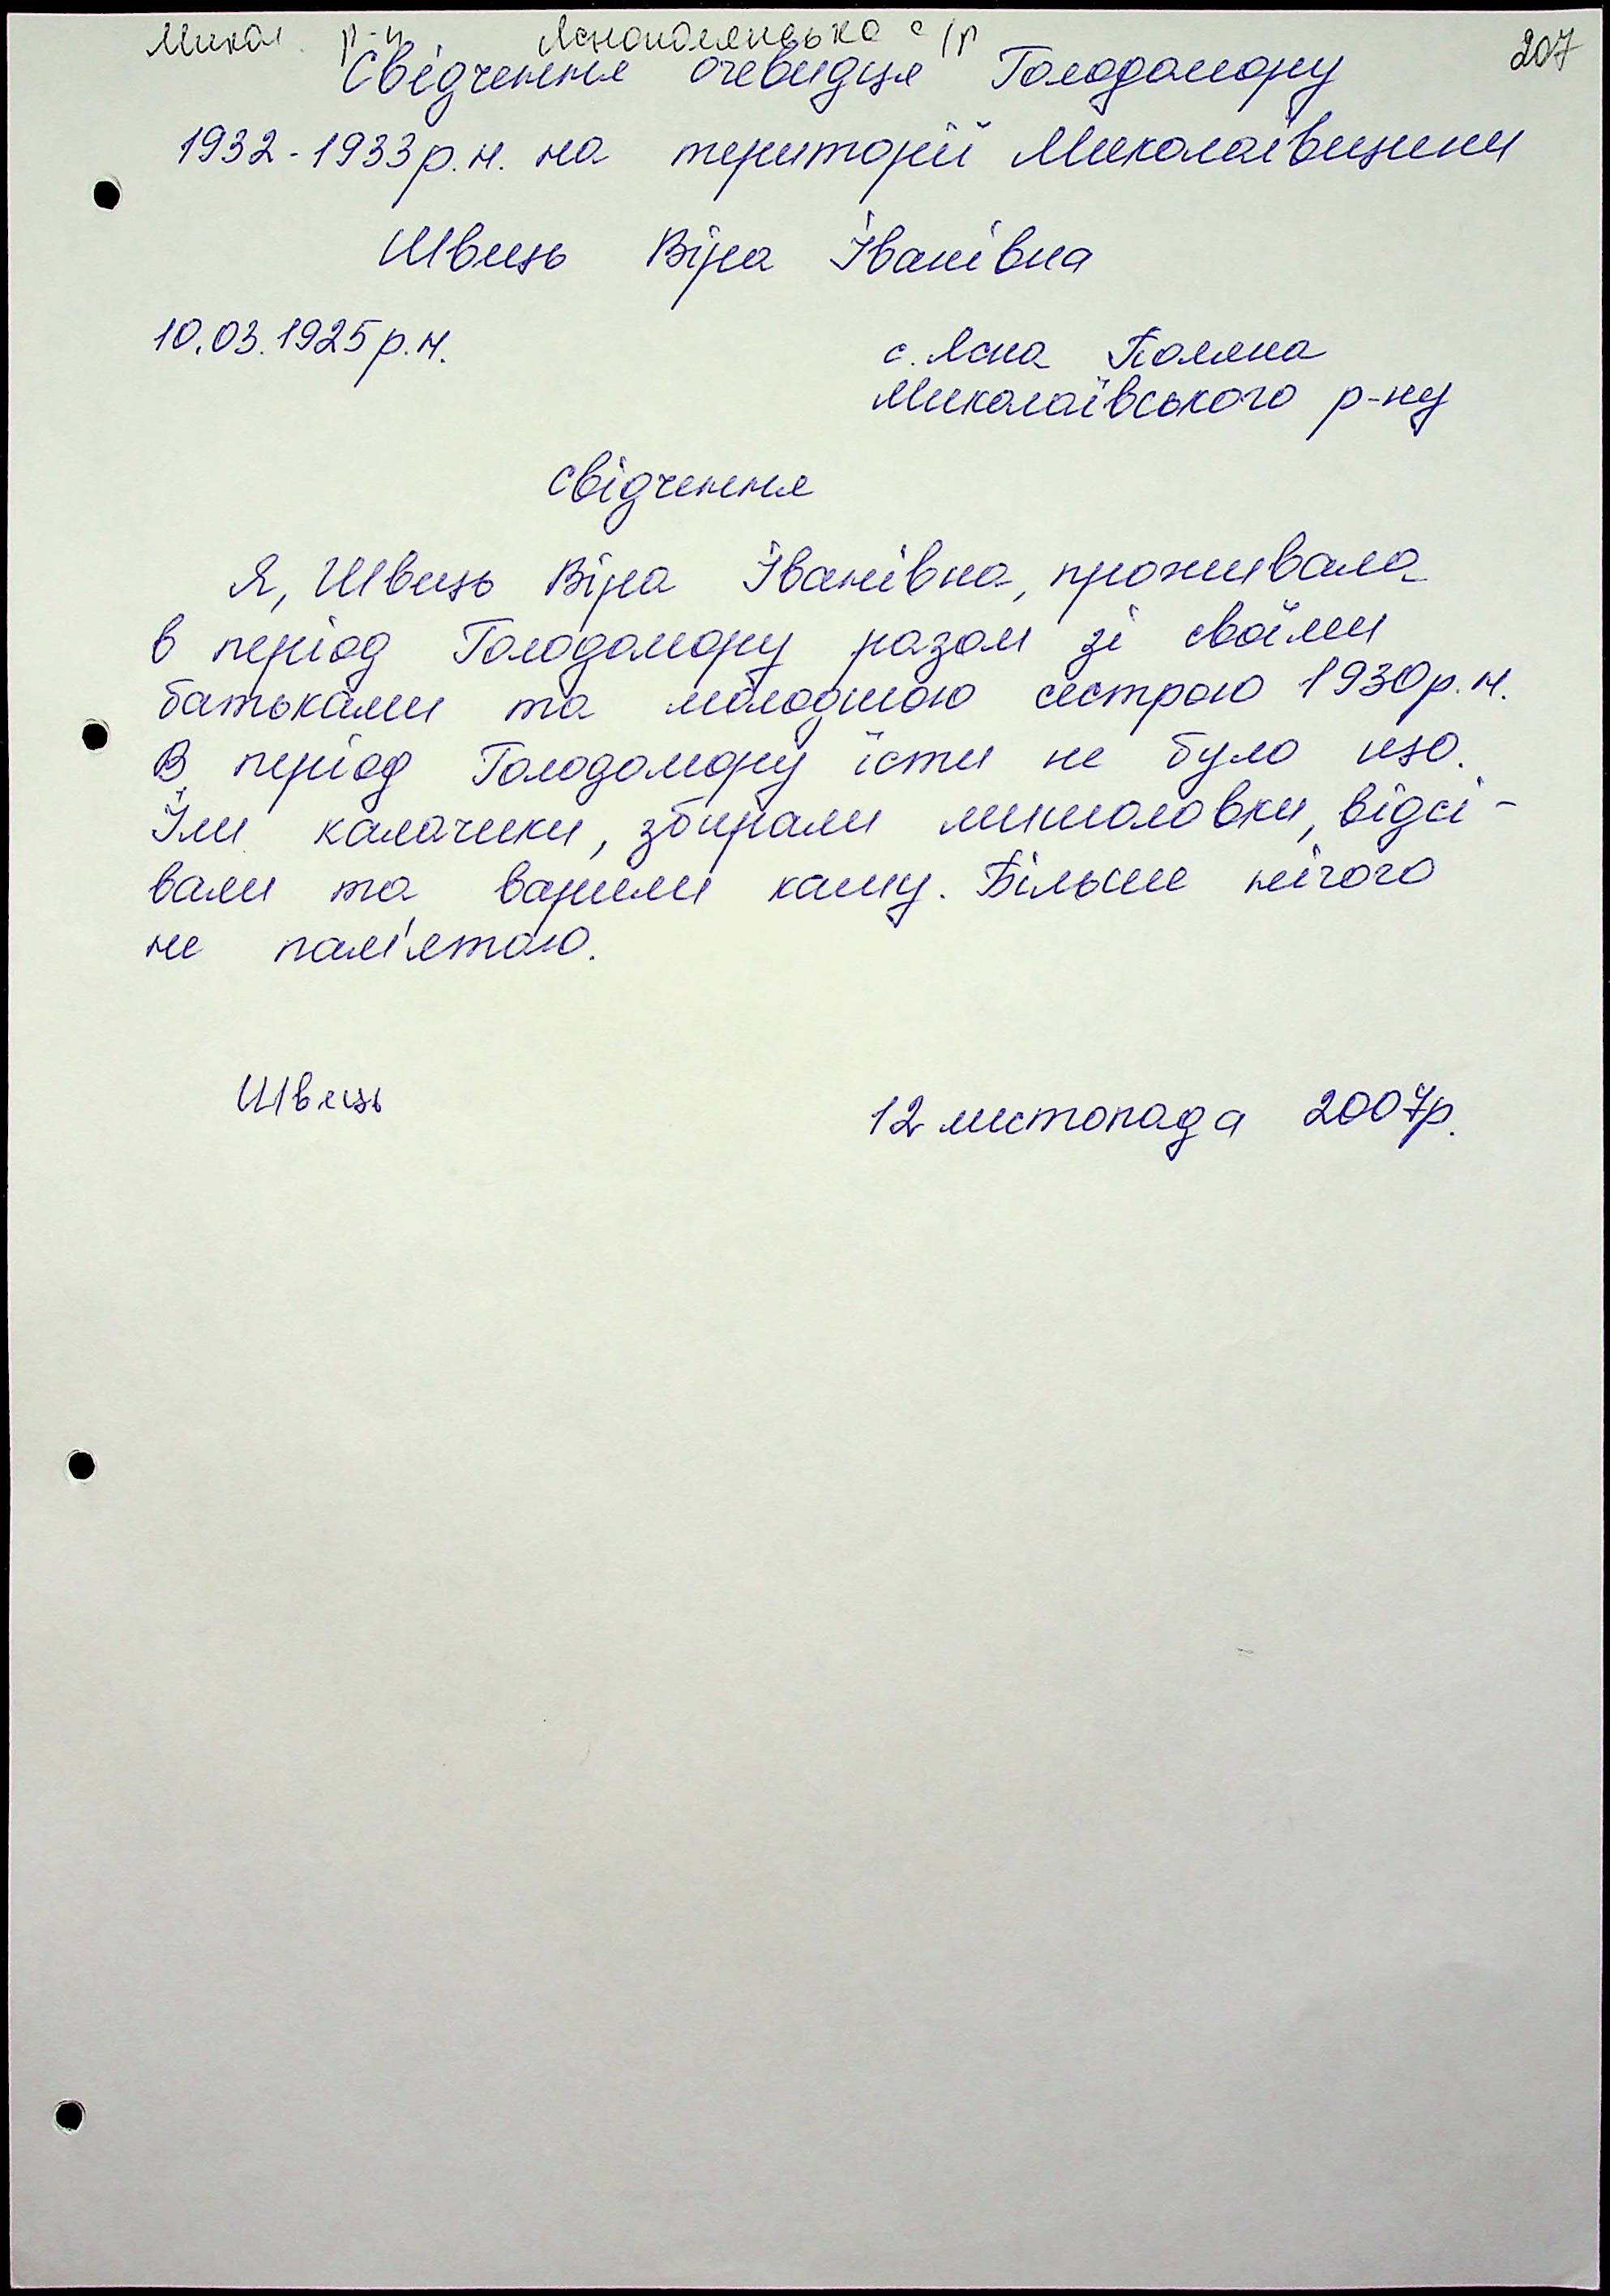 Микол. р-н Яснополянська с/р 207
Свідчення очевидця Голодомору
1932-1933р.н. на території Миколаївщини
Швець Віра Іванівна
10.03.1925р.н.
с. Ясна Поляна
Миколаївського р-ну
свідчення
Я, Швець Віра Іванівна, проживала
в період Голодомору разом зі своїми
батьками та молодшою сестрою 1930р.н.
В період Голодомору їсти не було що.
Їли калачики, збирали мишоловки, відсі-
вали та варили кашу. Більше нічого
не пам'ятаю.
Швець
12 листопада 2007р.